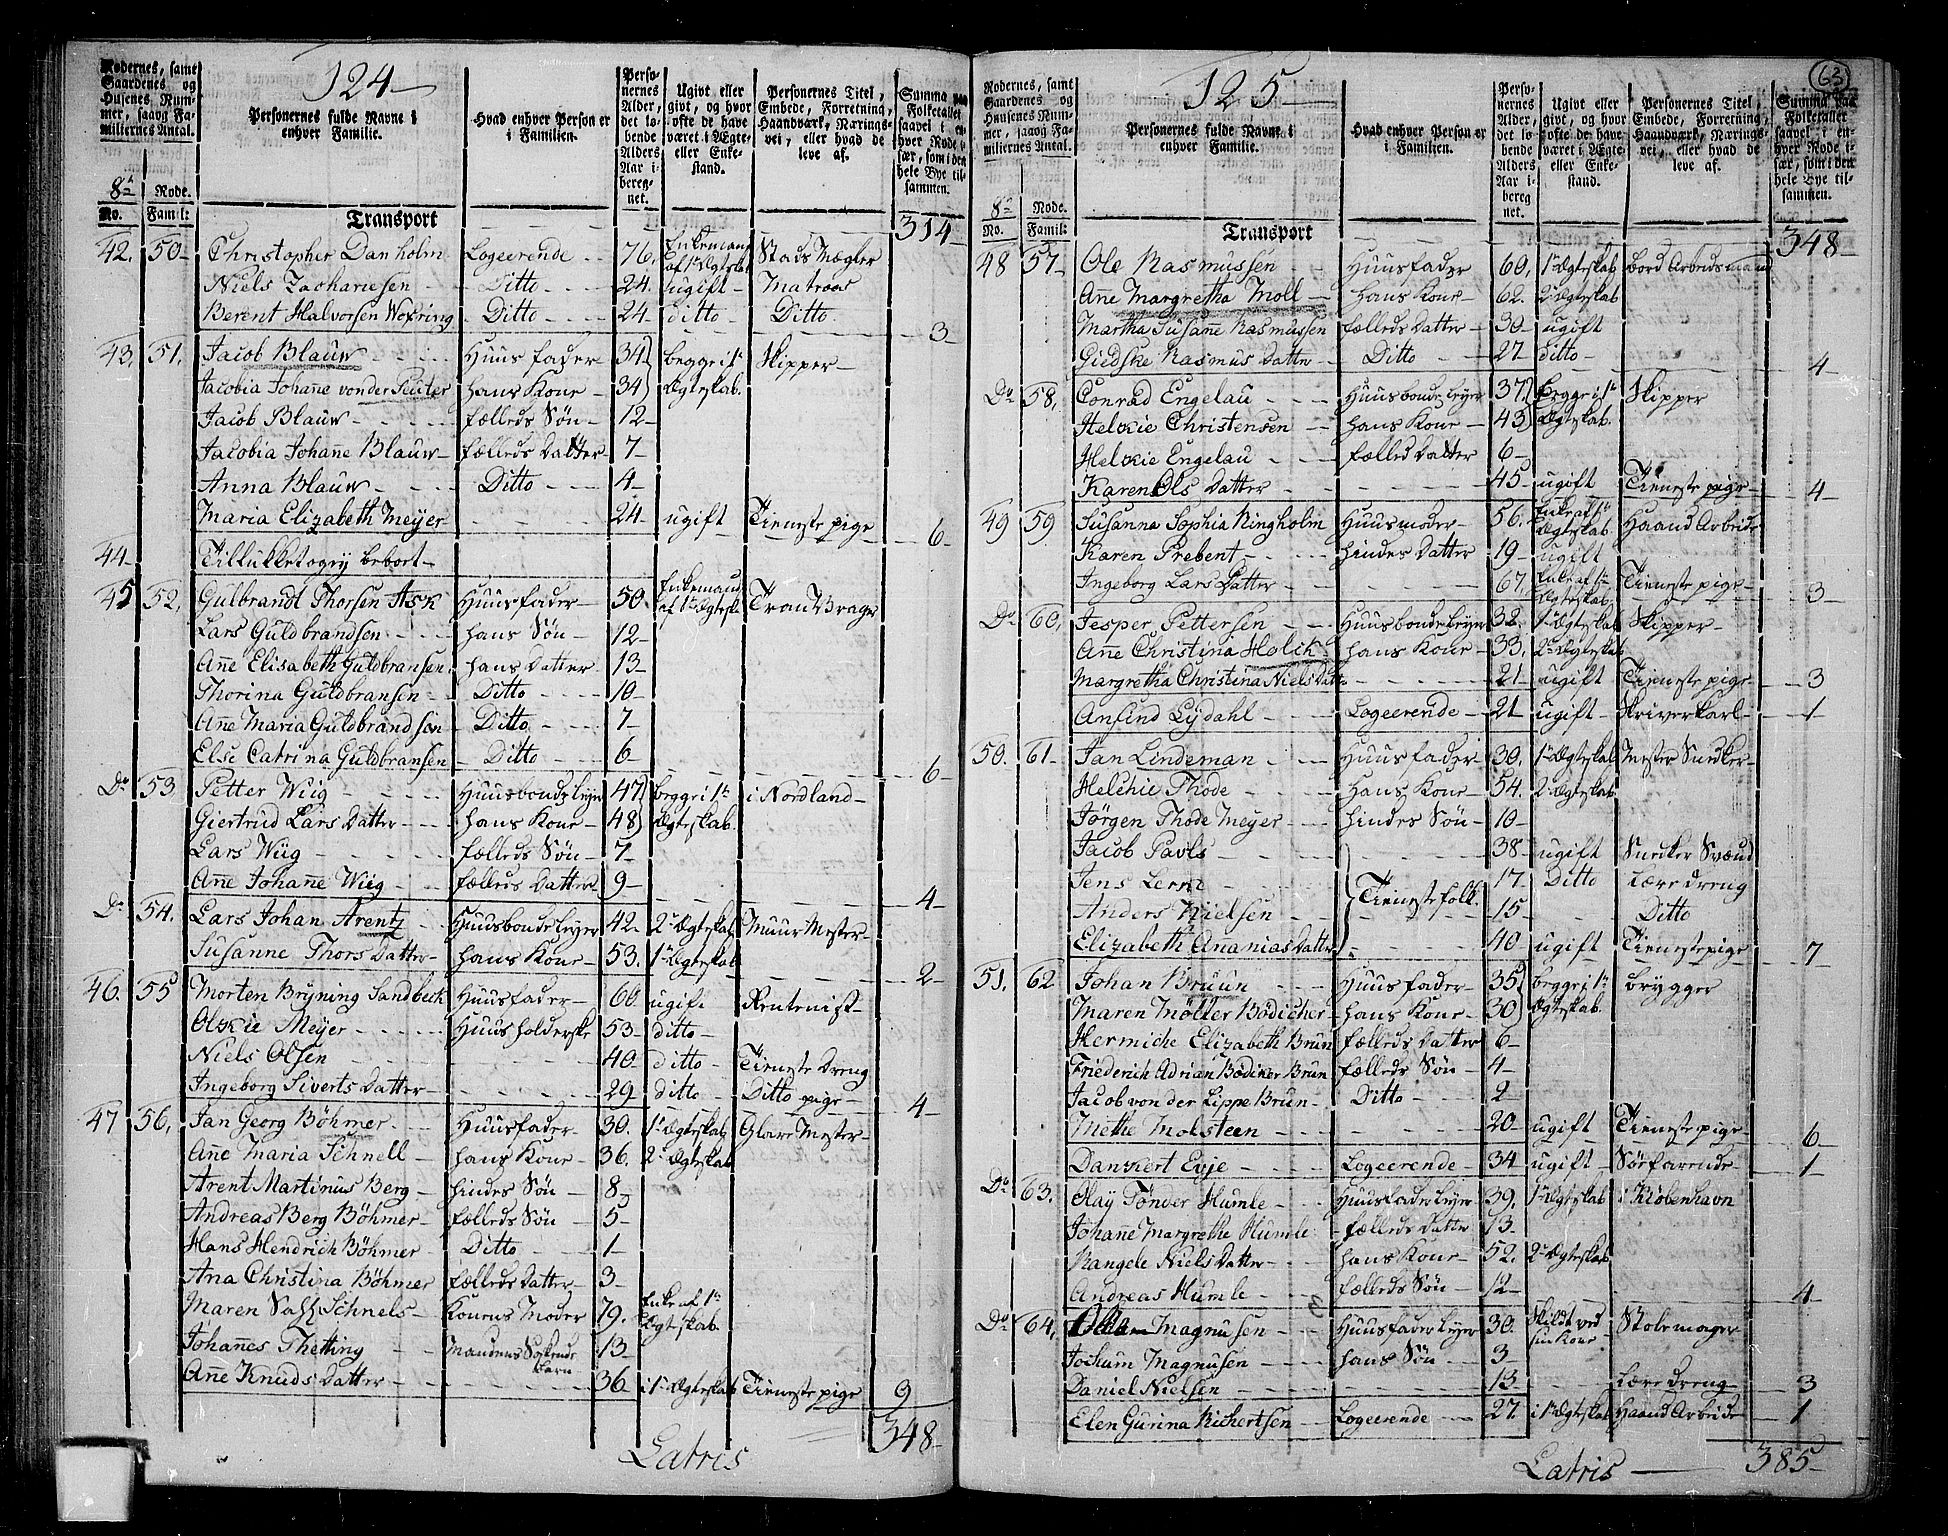 124
Rodernes, samt Gaardenes og Husenes Nummer, saavog Familiernes Antal.
Personernes fulde Navne i enhver Familie.
Hvad enhver Person er i Familien.
Personernes Alder, det løbende Alders Aar iberegnet.
Ugivt eller givt, og hvor ofte de have været i Ægte- eller Enkestand.
Personernes Titel, Embede, Forretning, Haandværk, Næringsvei, eller hvad de leve af.
Summa paa Folketallet saavel i enhver Rode især, som i den hele Bye tilsammen.
8de Rode.
No. Famil:
Transport 314
42. 50 Christopher Danholm Logeerende 76. Enkemand af 1te Ægtesk: Stads Mægler
Niels Zachariesen Ditto 24. ugift Matroos
Berent Halvorsen Ditto 24 ditto Ditto 3
43. 51. Jacob Blauw Huusfader 34 begge i 1te Skipper
Jacobia Johanne von der Peuter hans Kone 34 Ægteskab.
Jacob Blauw fælleds Søn 12
Jacobia Johanne Blauw fælleds Datter 7
Anna Blauw Ditto 4
Maria Elizabeth Meyer 24 ugift Tieneste pige 6
44 Tillukket og ey bebort
45 52. Gulbrandt Thorsen Ask Huusfader 50. Enkemand af 1te Ægtesk: Tran Vrager
Lars Guldbrandsen hans Søn 12
Anne Elisabeth Guldbransen hans Datter 13
Thorina Guldbransen Ditto 10
Anne Maria Guldbrandsen Ditto 7
Else Catrina Guldbransen Ditto 6 6
Do 53 Petter Wiig Huusbonde leyer 47 begge i 1te i Nordland
Giertrud Lars Datter hans Kone 48 Ægteskab.
Lars Wiig fælleds Søn 7
Anne Johanne Wiig fælleds Datter 9 4
Do 54. Lars Johan Arentz Huusbonde leyer 42. 2de Ægteskab Muur Mester
Susanne Thors Datter hans Kone 53. 1te Ægteskab 2
46. 55 Morten Bryning Sandbeck Huusfader 60 ugift Rentenist
Olskie Meyer Huusholderske 53 ditto
Niels Olsen 40 ditto Tieneste Dreng
Ingeborg Siverts Datter 29 ditto Ditto pige 4
47 56. Jan Georg Böhmer Huusfader 30. 1te Ægteskab Glare Mester
Ane Maria Schnell hans Kone 36. 2de Ægteskab
Arent Martinus Berg hindes Søn 8
Andreas Berg Böhmer fælleds Søn 5
Hans Hendrich Böhmer Ditto 1
Ana Christina Böhmer fælleds Datter 3
Maren Schnels Konens Moder 79. Enke af 1te Ægteskab
Johannes Thetting Mandens Barn 13
Anne Knuds Datter 36 i 1te Ægteskab Tieneste pige 9
Latris 348
63
125
Rodernes, samt Gaardenes og Husenes Nummer, saavog Familiernes Antal.
Personernes fulde Navne i enhver Familie.
Hvad enhver Person er i Familien.
Personernes Alder, det løbende Alders Aar iberegnet.
Ugivt eller givt, og hvor ofte de have været i Ægte- eller Enkestand.
Personernes Titel, Embede, Forretning, Haandværk, Næringsvei, eller hvad de leve af.
Summa paa Folketallet saavel i enhver Rode især, som i den hele Bye tilsammen.
8de Rode.
No. Famil:
Transport 348
48 57 Ole Rasmussen Huusfader 60. 1te Ægteskab bord Arbeidsmand
Anne Margretha Moll hans Kone 62. 2de Ægteskab
Martha Susanne Rasmussen fælleds Datter 30 ugift
Giedske Rasmus Datter Ditto 27 ditto 4
Do 58. Conrad Engelau Huusbonde leyer 37. begge i 1te Skipper
Helskie Christensen hans Kone 43 Ægteskab.
Helskie Engelau fælled Datter 6
Karen Ols Datter 45 ugift Tieneste pige 4
49 59 Susanna Sophia Ringholm Huusmoder 56. Enke af 1te Ægteskab Haand Arbeide
Karen Prebent hindes Datter 19 ugift
Ingeborg Lars Datter 67. Enke af 1te Ægteskab Tieneste pige 3
Do 60. Jesper Pettersen Huusbonde leyer 32. 1te Ægteskab Skipper
Anne Christina Holck hans Kone 33. 2de Ægteskab
Margretha Christina Niels Datter 21 ugift Tieneste pige 3
Ansend Lydahl Logeerende 21 ugift Skriverkarl 1
50. 61 Jan Lindeman Huusfader 30. 1te Ægteskab Mester Snedker
Helchie Thode Hans Kone 54. 2de Ægteskab
Jörgen Thode Meyer hindes Søn 10
Jacob Pavls 38 ugift Snedker Svend
Jens Lerri Tienestefolk. 17. Ditto Lære dreng
Anders Nielsen 15 Ditto
Elizabeth Ananias Datter 40 ugift Tienestepige 7
51. 62 Johan Bruun Huusfader 35 begge i 1te brygger
Maren Möller Bödicher hans Kone 30 Ægteskab.
Hermiche Elizabeth Brun fælleds Datter 6
Friederich Adrian Bödiker Brun fælleds Søn 4
Jacob von der Lippe Brun Ditto 2
Methe Molsteen 20 ugift Tieneste pige 6
Danckert Egje Logeerende 34 ugift Søefarende 1
Do 63. Olay Tønder Humle Huusfader leyer 39. 1te Ægteskab i Kiöbenhavn
Johanne Margrethe Humle fælleds Datter 13
Rangele Niels Datter hans Kone 52. 2de Ægteskab
Andreas Humle fælleds Søn 12 4
Do 64. Magnusen Huusfader leyer 30. Skildt ved sin Kone Stolemager
Jochum Magnusen hans Søn 3
Daniel Nielsen 13 Lære dreng 3
Elen Gurina Richertsen Logeerende 27 i 1te Ægteskab Haand Arbeide 1
Latris 385